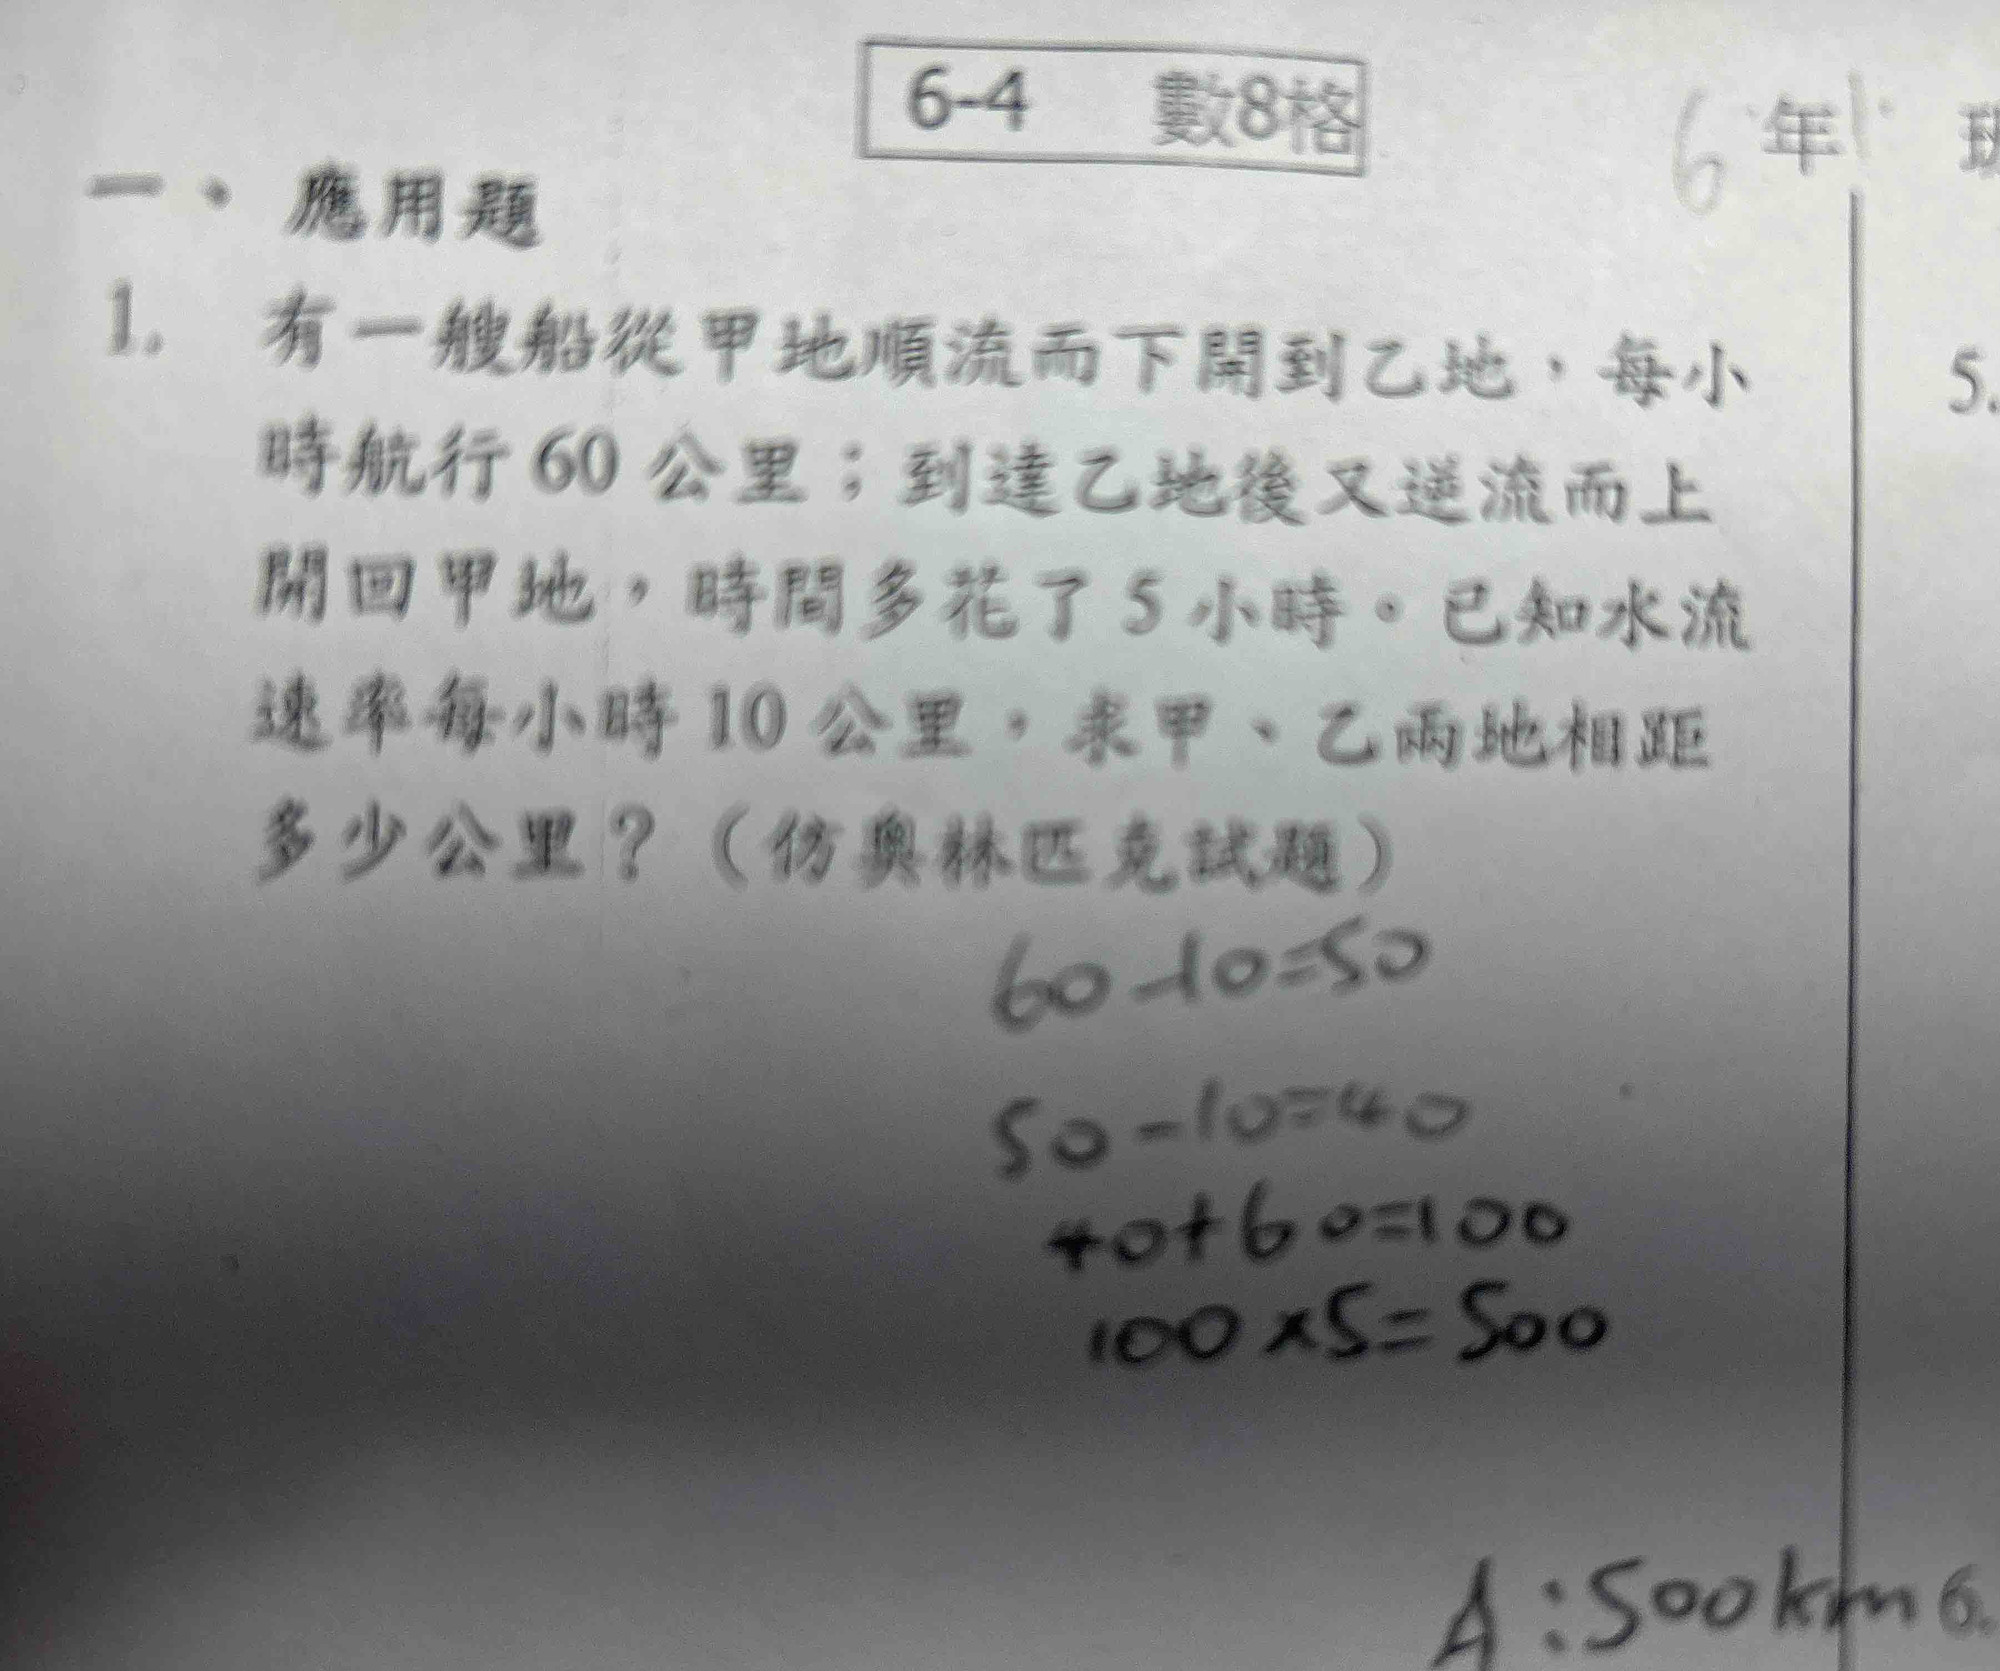 6-4 數8格
6年1班
一、應用題
1. 有一艘船從甲地順流而下開到乙地，每小
時航行 60 公里；到達乙地後又逆流而上
開回甲地，時間多花了 5 小時。已知水流
速率每小時 10 公里，求甲、乙兩地相距
多少公里？（仿奧林匹克試題）
60-10=50
50-10=40
40+60=100
100×5=500
A:500km
5.
6.